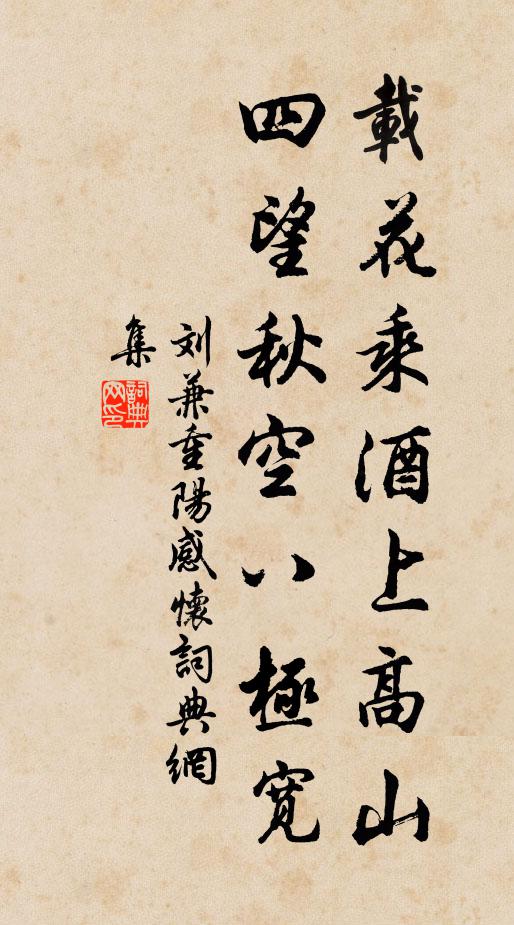 載花乘酒上高山
四望秋空八極寬
刘兼重陽感懷詞典網
集
詞典
网印